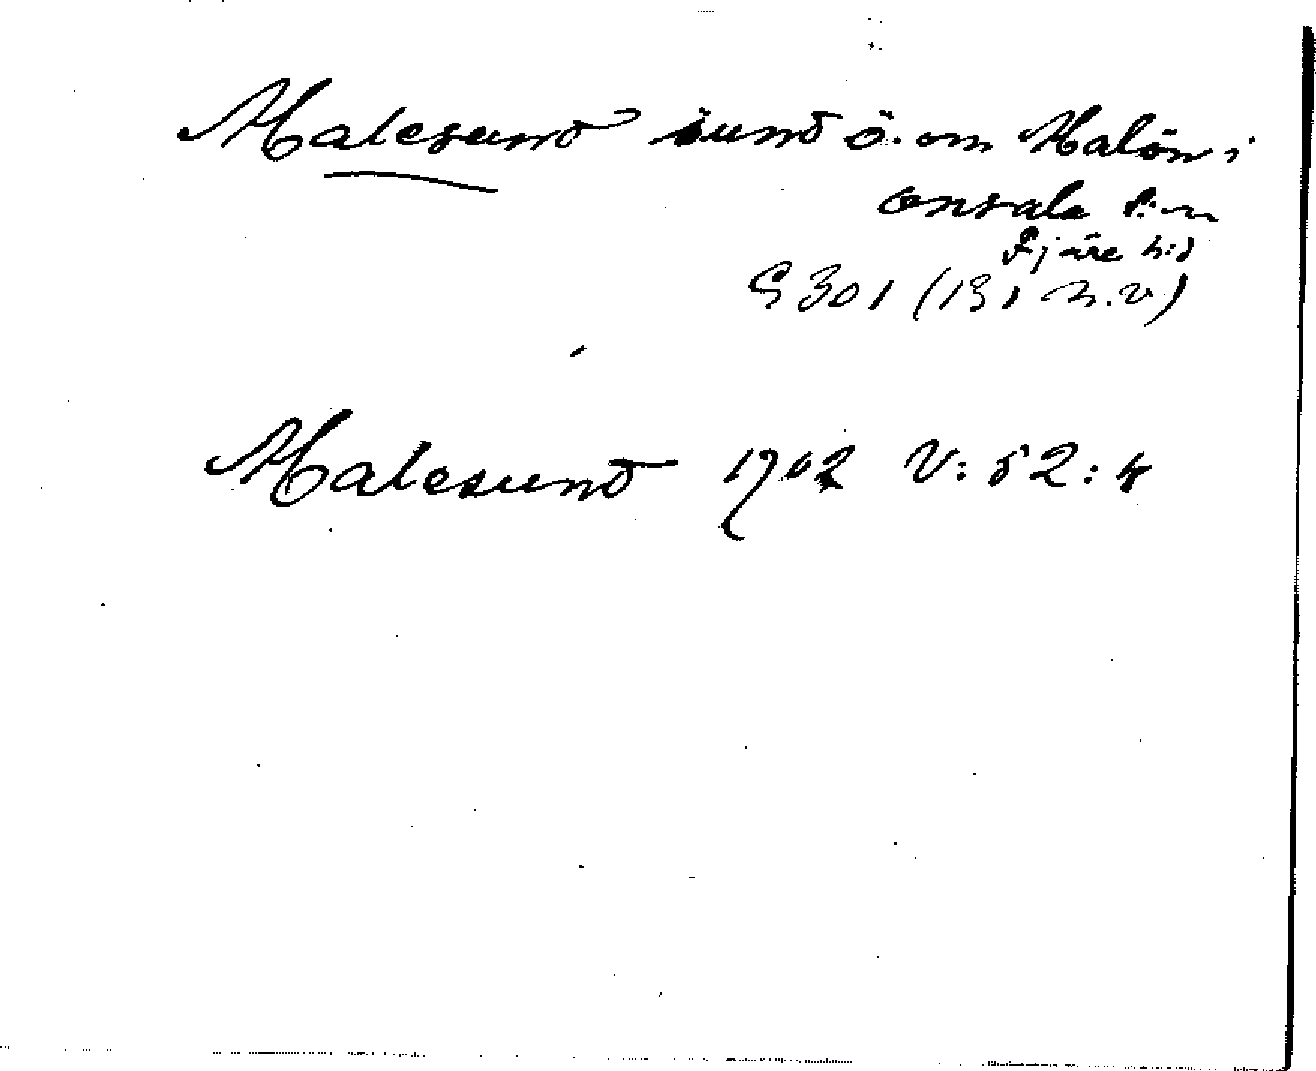 Malesund sund ö. om Malön i
Onsala s:n
Fjäre h:d
G 301 (131 n.v.)
Malesund 1702 V:52:4